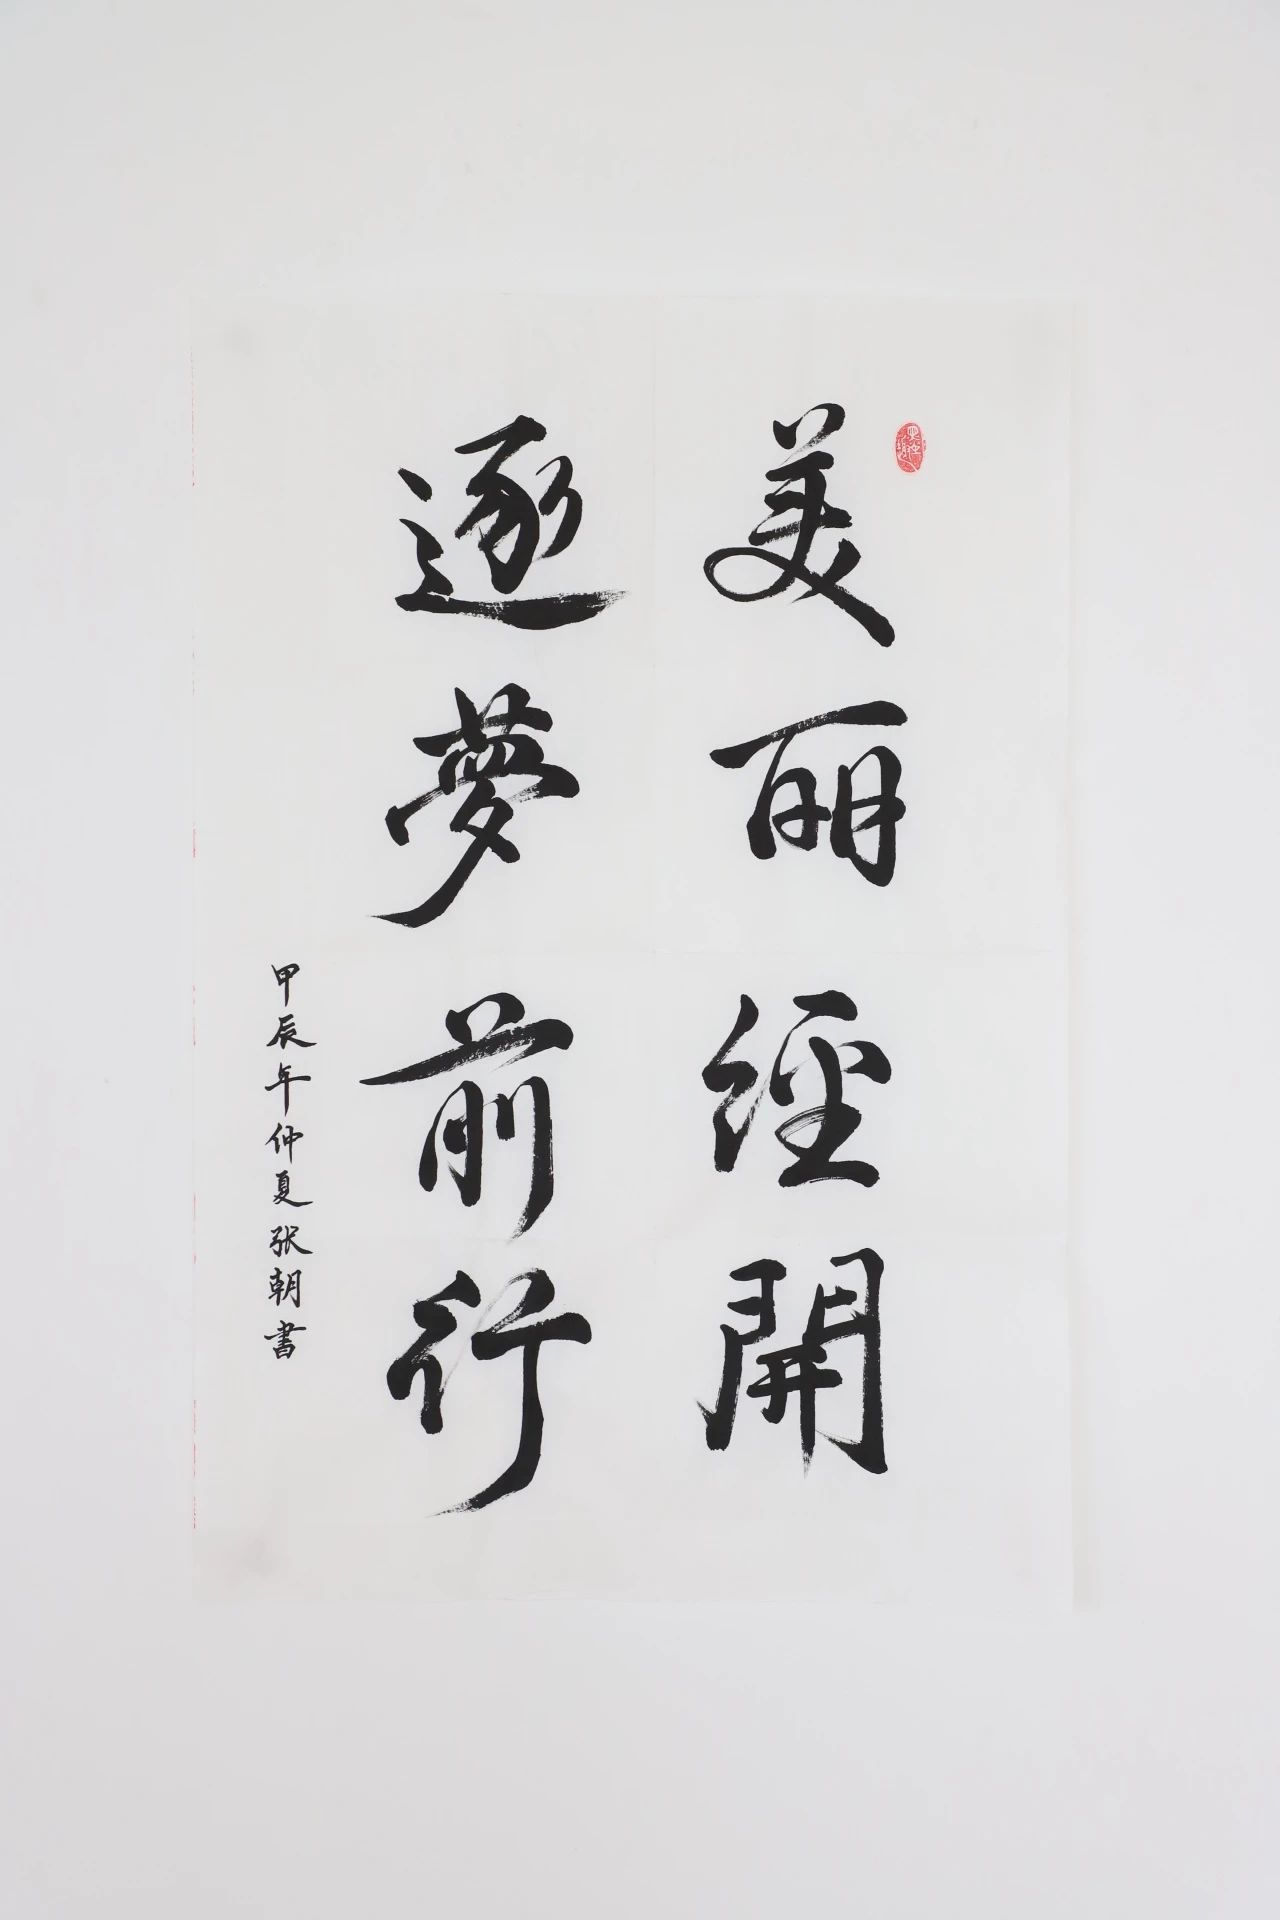 美丽經開
逐夢前行
甲辰年仲夏张朝書